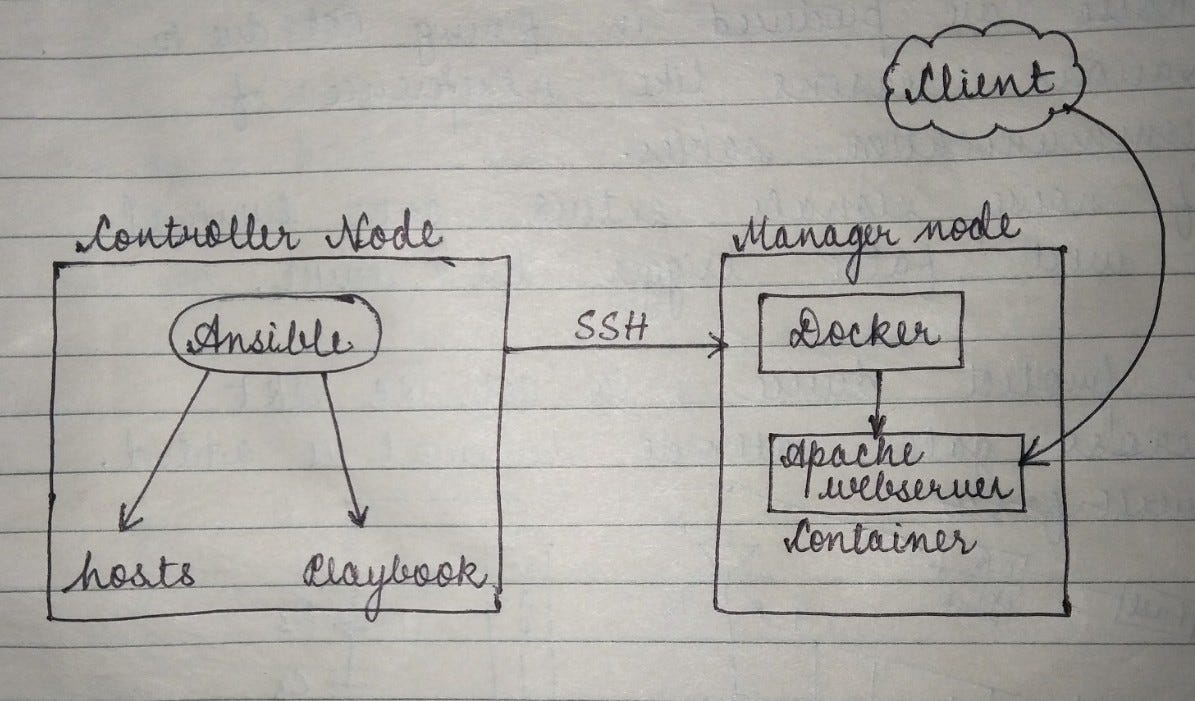 Client
Controller Node
Manager node
Ansible
SSH
Docker
Apache
webserver
Container
hosts
Playbook